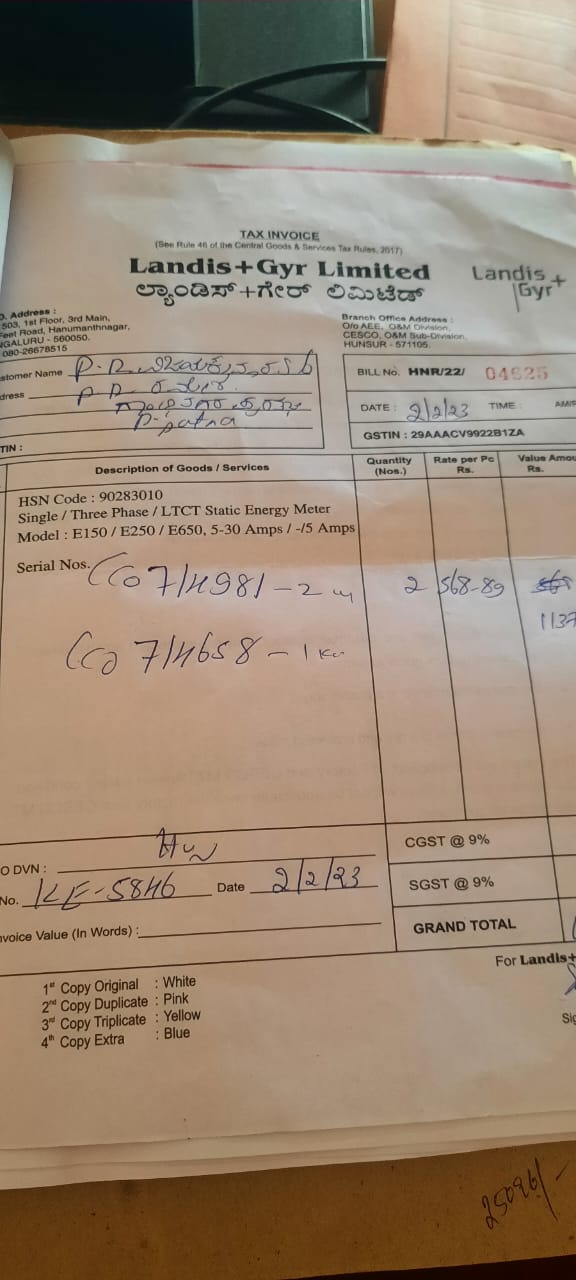 TAX INVOICE
(See Rule 46 of the Central Goods & Services Tax Rules, 2017)
Landis+Gyr Limited
ಲ್ಯಾಂಡಿಸ್+ಗೇರ್ ಲಿಮಿಟೆಡ್
Landis+
Gyr
Address :
503, 1st Floor, 3rd Main,
Feet Road, Hanumanthnagar,
NGALURU - 560050.
080-26678515
Branch Office Address :
O/o AEE, O&M Division,
CESCO, O&M Sub-Division,
HUNSUR - 571105.
stomer Name P.R.
dress P R
P-patna
TIN :
BILL No. HNR/22/ 04625
DATE : 2/2/23 TIME :
GSTIN : 29AAACV9922B1ZA
Description of Goods / Services
Quantity (Nos.)
Rate per Pc Rs.
Value Amou Rs.
HSN Code : 90283010
Single / Three Phase / LTCT Static Energy Meter
Model : E150 / E250 / E650, 5-30 Amps / -/5 Amps
Serial Nos. CC0714981-2 2 568-89
1137
CC0714658-1
CGST @ 9%
O DVN : Hun
SGST @ 9%
No. KE-5846 Date 2/2/23
GRAND TOTAL
nvoice Value (In Words) :
For Landis+
1st Copy Original : White
2nd Copy Duplicate : Pink
3rd Copy Triplicate : Yellow
4th Copy Extra : Blue
Sig